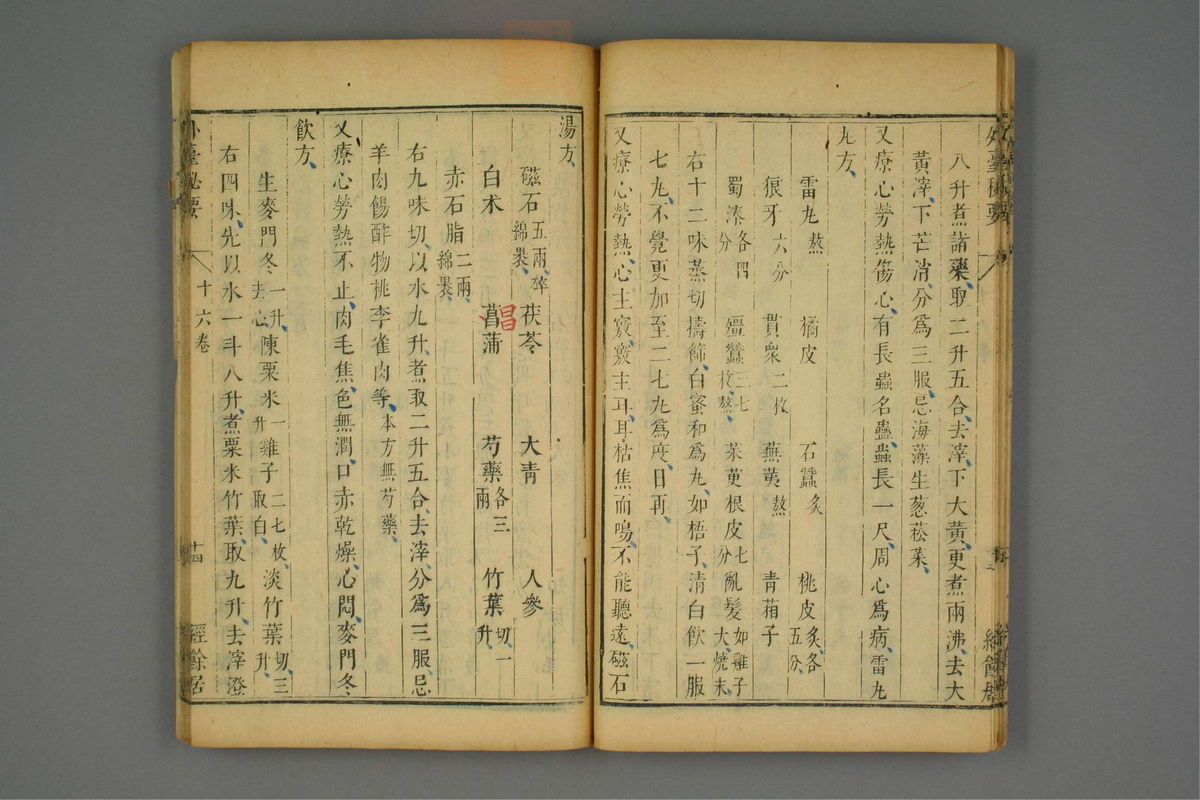 外臺秘要
八升煮諸藥、取二升五合、去滓、下大黃、更煮兩沸、去大
黃滓、下芒消、分爲三服、忌海藻生葱菘菜、
又療心勞熱傷心、有長蟲名蠱、蟲長一尺、周心爲病、雷丸
丸方、
雷丸熬 橘皮 石蠶炙 桃皮炙、各五分、
狼牙六分 貫衆二枚 蕪荑熬 青葙子
蜀漆各四分 殭蠶三七枚、熬、 茱萸根皮七分 亂髮如雞子大、燒末、
右十二味、蒸切擣篩、白蜜和爲丸、如梧子、清白飲一服
七丸、不覺更加至二七丸爲度、日再、
又療心勞熱、心主竅、竅主耳、耳枯焦而鳴、不能聽遠、磁石
湯方、
磁石五兩、碎綿裹、 茯苓 大青 人參
白术 菖蒲 芍藥各三兩 竹葉切、一升、
昌
赤石脂二兩、綿裹、
右九味切、以水九升、煮取二升五合、去滓、分爲三服、忌
羊肉餳酢物桃李雀肉等、本方無芍藥、
又療心勞熱不止、肉毛焦、色無潤、口赤乾燥、心悶、麥門冬
飲方、
生麥門冬一升、去心 陳粟米一升 雞子二七枚、取白、 淡竹葉切、三升、
右四味、先以水一斗八升、煮粟米竹葉、取九升、去滓澄
外臺秘要 十六卷 十四 經餘居